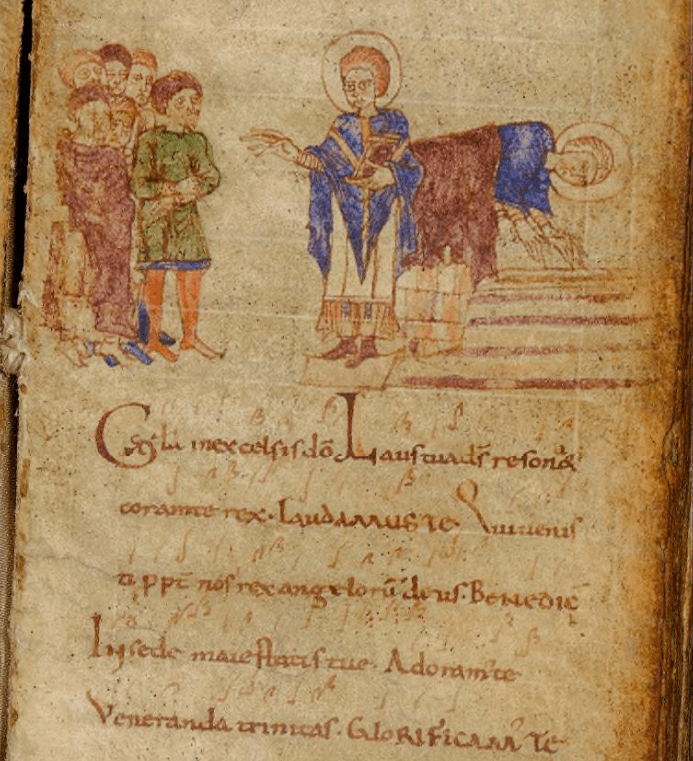 Gla inexcelsis dō Laus tua ds̄ resonet
coram te rex. LAUDAMUS TE. Qui venis
ti ppt̄ nos rex angeloru᷃ deus. BENEDIC̄
In sede maiestatis tue. Adoram᷒te
Veneranda trinitas. GLORIFICAM᷒ TE